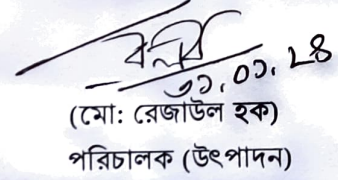 ৩১.০১.২৪
(মো: রেজাউল হক)
পরিচালক (উৎপাদন)